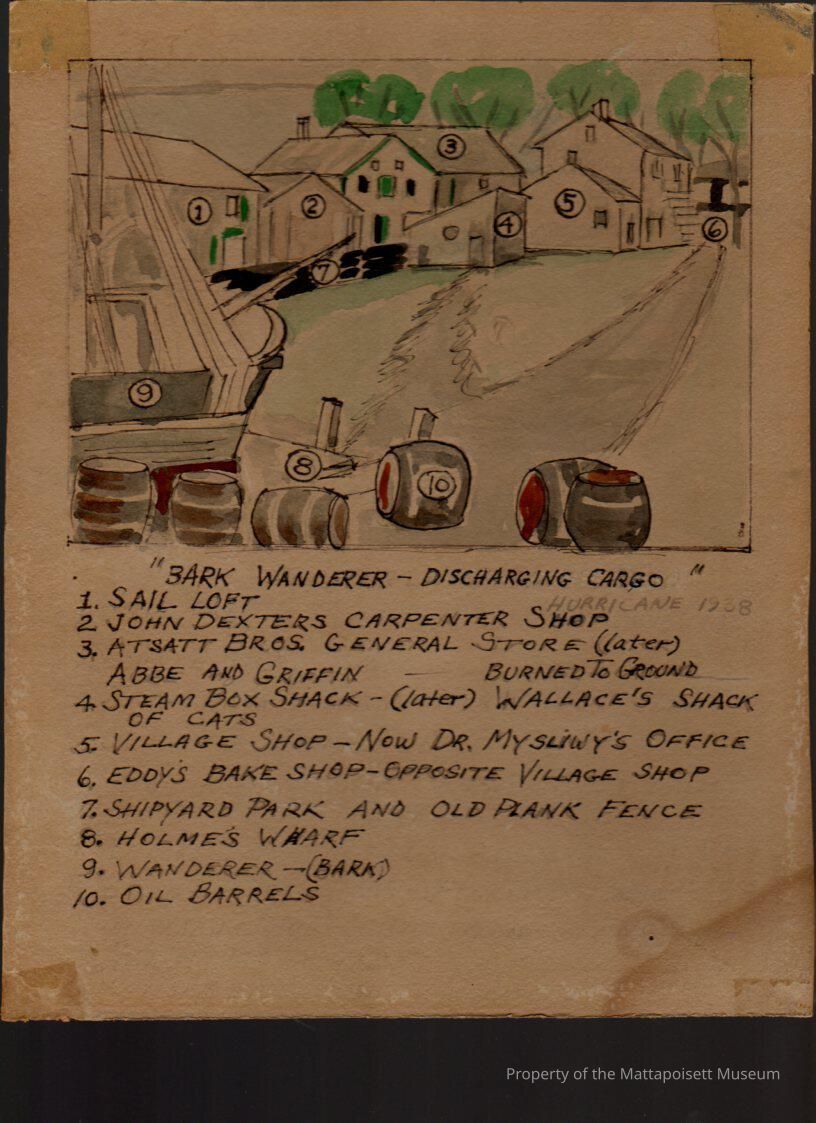 1
2
3
4
5
6
7
8
9
10
"BARK WANDERER - DISCHARGING CARGO "
1. SAIL LOFT
HURRICANE 1938
2 JOHN DEXTERS CARPENTER SHOP
3. ATSATT BROS. GENERAL STORE (later)
ABBE AND GRIFFIN — BURNED TO GROUND
4. STEAM BOX SHACK - (later) WALLACE'S SHACK
OF CATS
5. VILLAGE SHOP - NOW DR. MYSLIWY'S OFFICE
6. EDDY'S BAKE SHOP - OPPOSITE VILLAGE SHOP
7. SHIPYARD PARK AND OLD PLANK FENCE
8. HOLME'S WHARF
9. WANDERER - (BARK)
10. OIL BARRELS
Property of the Mattapoisett Museum